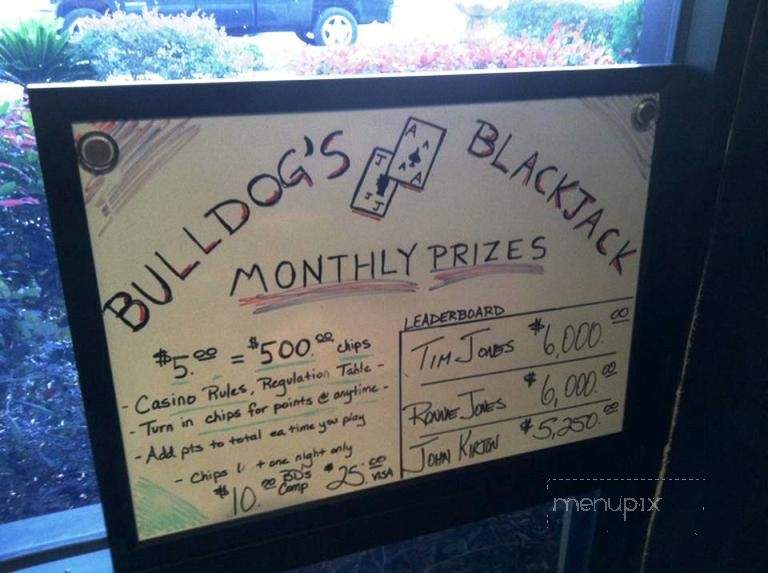 BULLDOG'S BLACKJACK
A
A
A
A
A
J
J
J
MONTHLY PRIZES
$5.00 = $500.00 chips
- Casino Rules, Regulation Table -
- Turn in chips for points @ anytime -
- Add pts to total ea time you play
- Chips + one night only
$10.00 BD's Comp $25.00 VISA
LEADERBOARD
TIM JONES $6,000.00
RONNIE JONES $6,000.00
JOHN KIRTEN $5,250.00
menupix